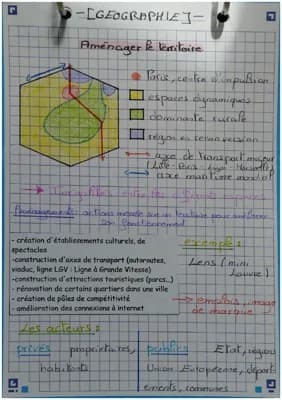 -[GEOGRAPHIE]-
Aménager le territoire
Paris, centre d'impulsion
espaces dynamiques
dominante rurale
région en reconversion
axe de transport majeur
axe maritime mondial
Aménagements : actions menée sur un territoire pour améliorer
son fonctionnement
- création d'établissements culturels, de
spectacles
-construction d'axes de transport (autoroutes,
viaduc, ligne LGV : Ligne à Grande Vitesse)
-construction d'attractions touristiques (parcs...)
- rénovation de certains quartiers dans une ville
- création de pôles de compétitivité
-amélioration des connexions à Internet
exemple :
Lens (mini
Louvre)
→ emplois, image
de marque
Les acteurs :
privés propriétaires,
habitants
publics Etat, régions
Union Européenne, départ
ements, communes